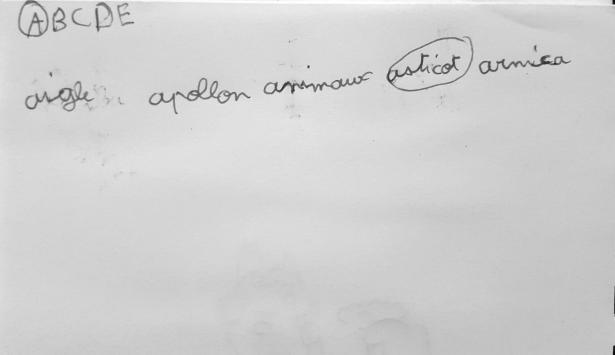 ABCDE
aigle apollon animaux asticot arnica